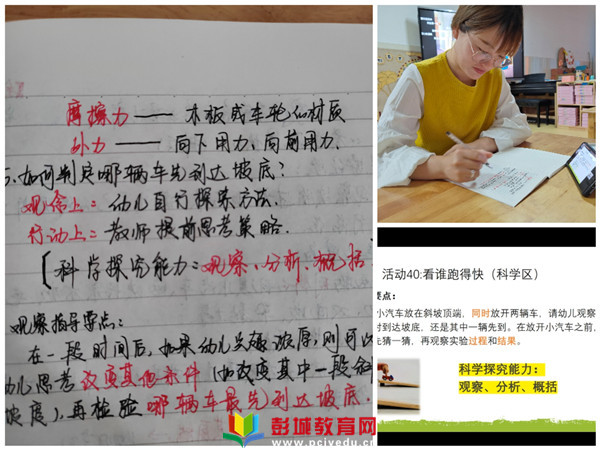 摩擦力 —— 木板或车轮的材质
外力 —— 向下用力、向前用力.
5.如何判定哪辆车先到达坡底?
观念上: 幼儿自行探索方法.
行动上: 教师提前思考策略.
[科学探究能力: 观察、分析、概括.
观察指导要点:
在一段时间后, 如果幼儿兴趣浓厚, 则可以
幼儿思考改变其他条件(如改变其中一段斜
坡度), 再检验哪辆车最先到达坡底.
活动40:看谁跑得快（科学区）
要点:
小汽车放在斜坡顶端，同时放开两辆车，请幼儿观察
时到达坡底，还是其中一辆先到。在放开小汽车之前，
先猜一猜，再观察实验过程和结果。
科学探究能力：
观察、分析、概括
彭城教育网
www.pcjyedu.cn